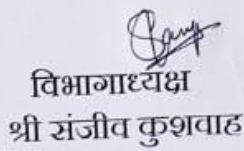 विभागाध्यक्ष
श्री संजीव कुशवाह